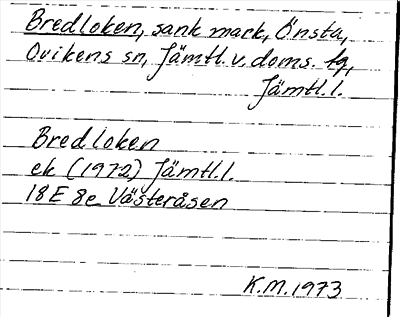 Bredloken, sank mark, Önsta,
Ovikens sn, Jämtl. v. doms. tg,
Jämtl.l.
Bredloken
ek (1972) Jämtl.l.
18E 8e Västeråsen
K.M. 1973